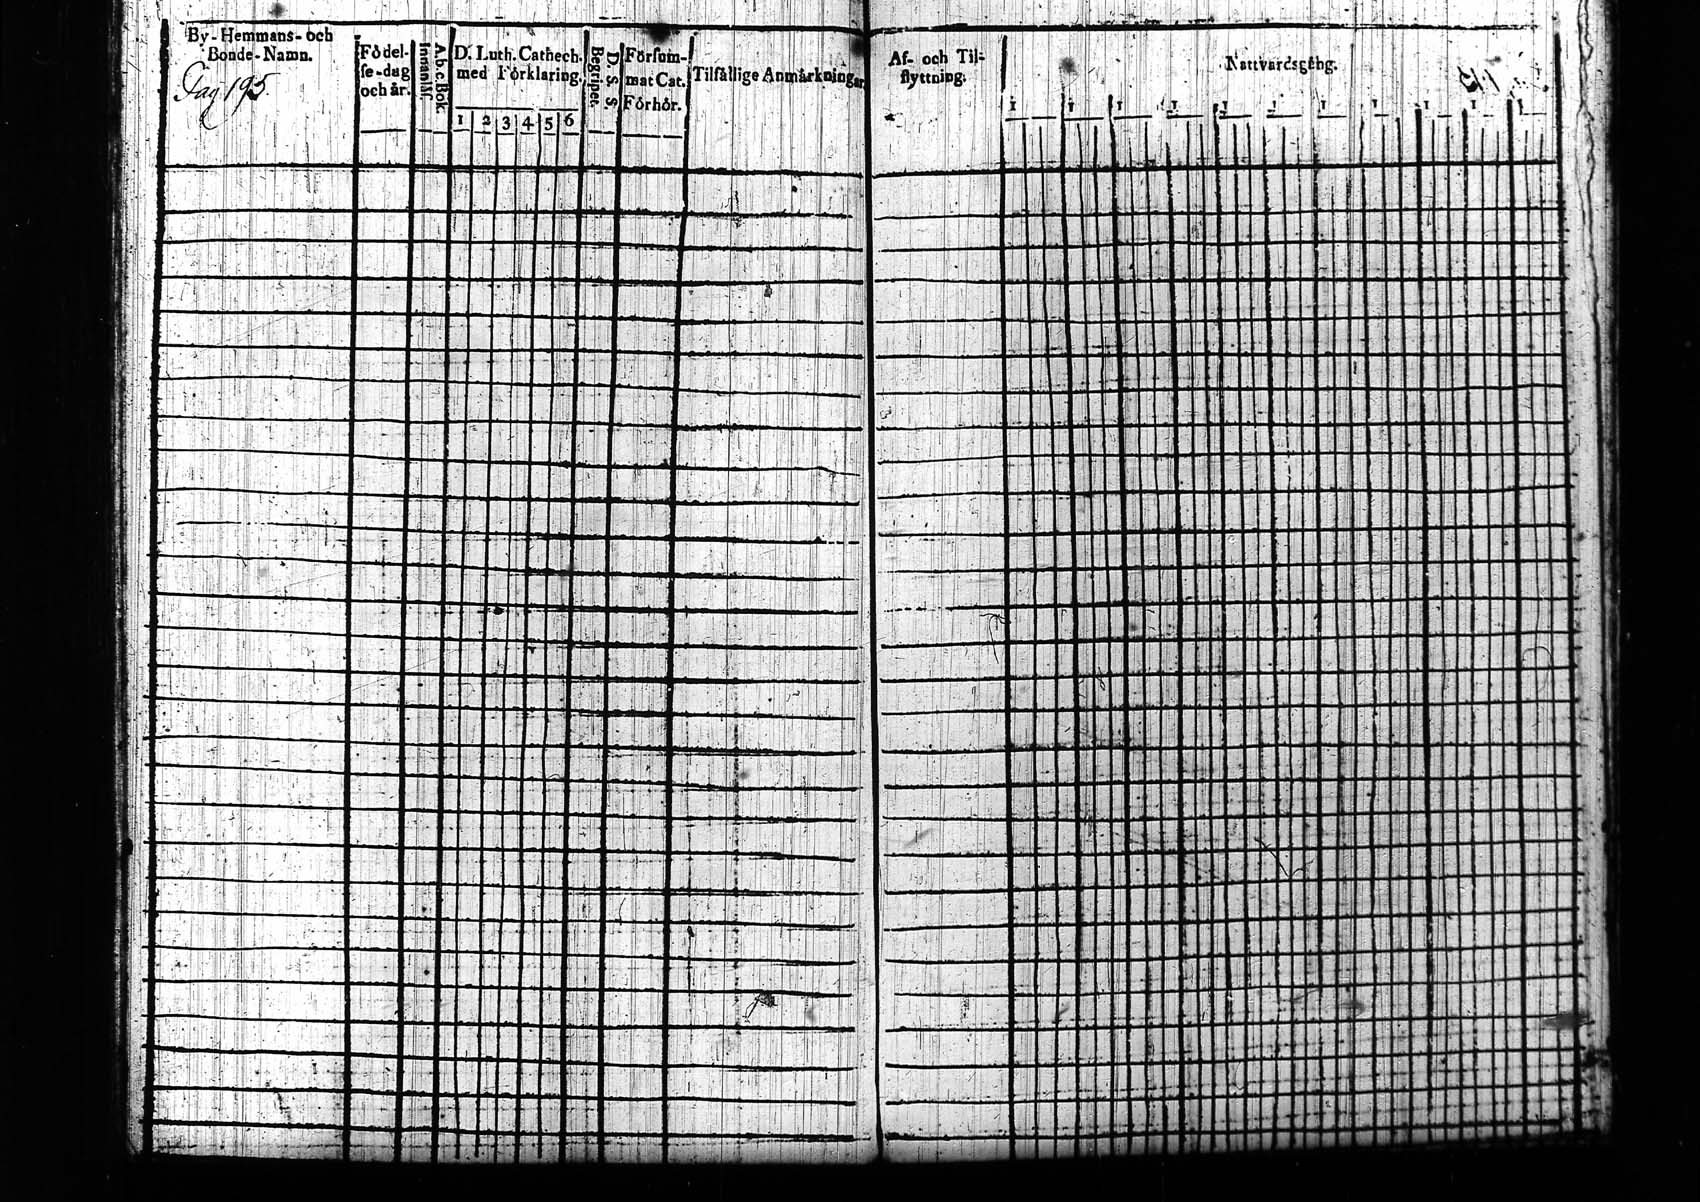 By-Hemmans- och
Bonde-Namn.
Pag 195.
Födel-
se-dag
och år.
Innanläs.
A.b.c.Bok.
D. Luth. Cathech.
med Förklaring.
1 2 3 4 5 6
Begripet.
D. S. S
Försum-
mat Cat.
Förhör.
Tilfällige Anmärkningar
Af- och Til-
flyttning.
Nattvardsgång.
1 1 1 1 1 1 1 1 1 1 1